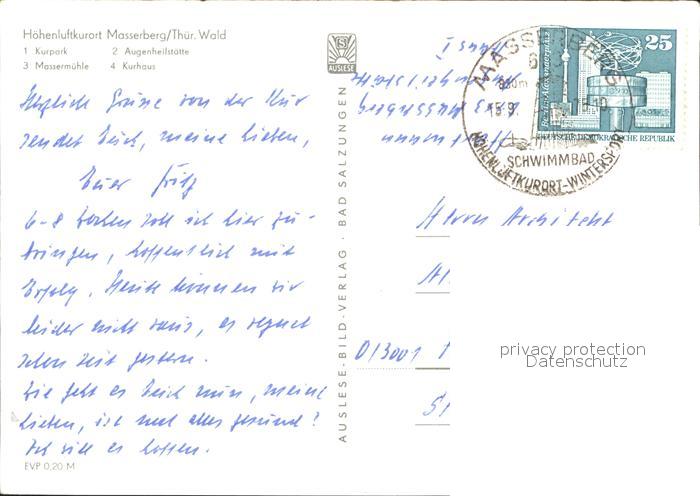 Höhenluftkurort Masserberg/Thür. Wald
1 Kurpark 2 Augenheilstätte
3 Massermühle 4 Kurhaus
Herzliche Grüße von der Kur
sendet Euch, meine Lieben,
Euer Fritz
6-8 Wochen soll ich hier zu-
bringen, hoffentlich mit
Erfolg. Heute können wir
leider nicht raus, es regnet
schon seit gestern.
Wie geht es Euch nun, meine
Lieben, ist mal alles gesund?
Ich will es hoffen.
EVP 0,20 M
AUSLESE
AUSLESE-BILD-VERLAG · BAD SALZUNGEN
Haus I
MASSERBERG
15.9.
SCHWIMMBAD
HÖHENLUFTKURORT-WINTERSPORT
25
DEUTSCHE DEMOKRATISCHE REPUBLIK
Herrn Architekt
D/3001
privacy protection
Datenschutz